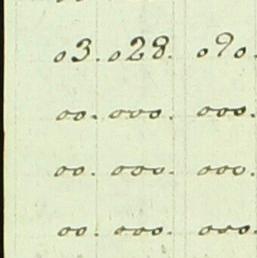 03. 028. 090.
00. 000. 000.
00. 000. 000.
00. 000. 000.